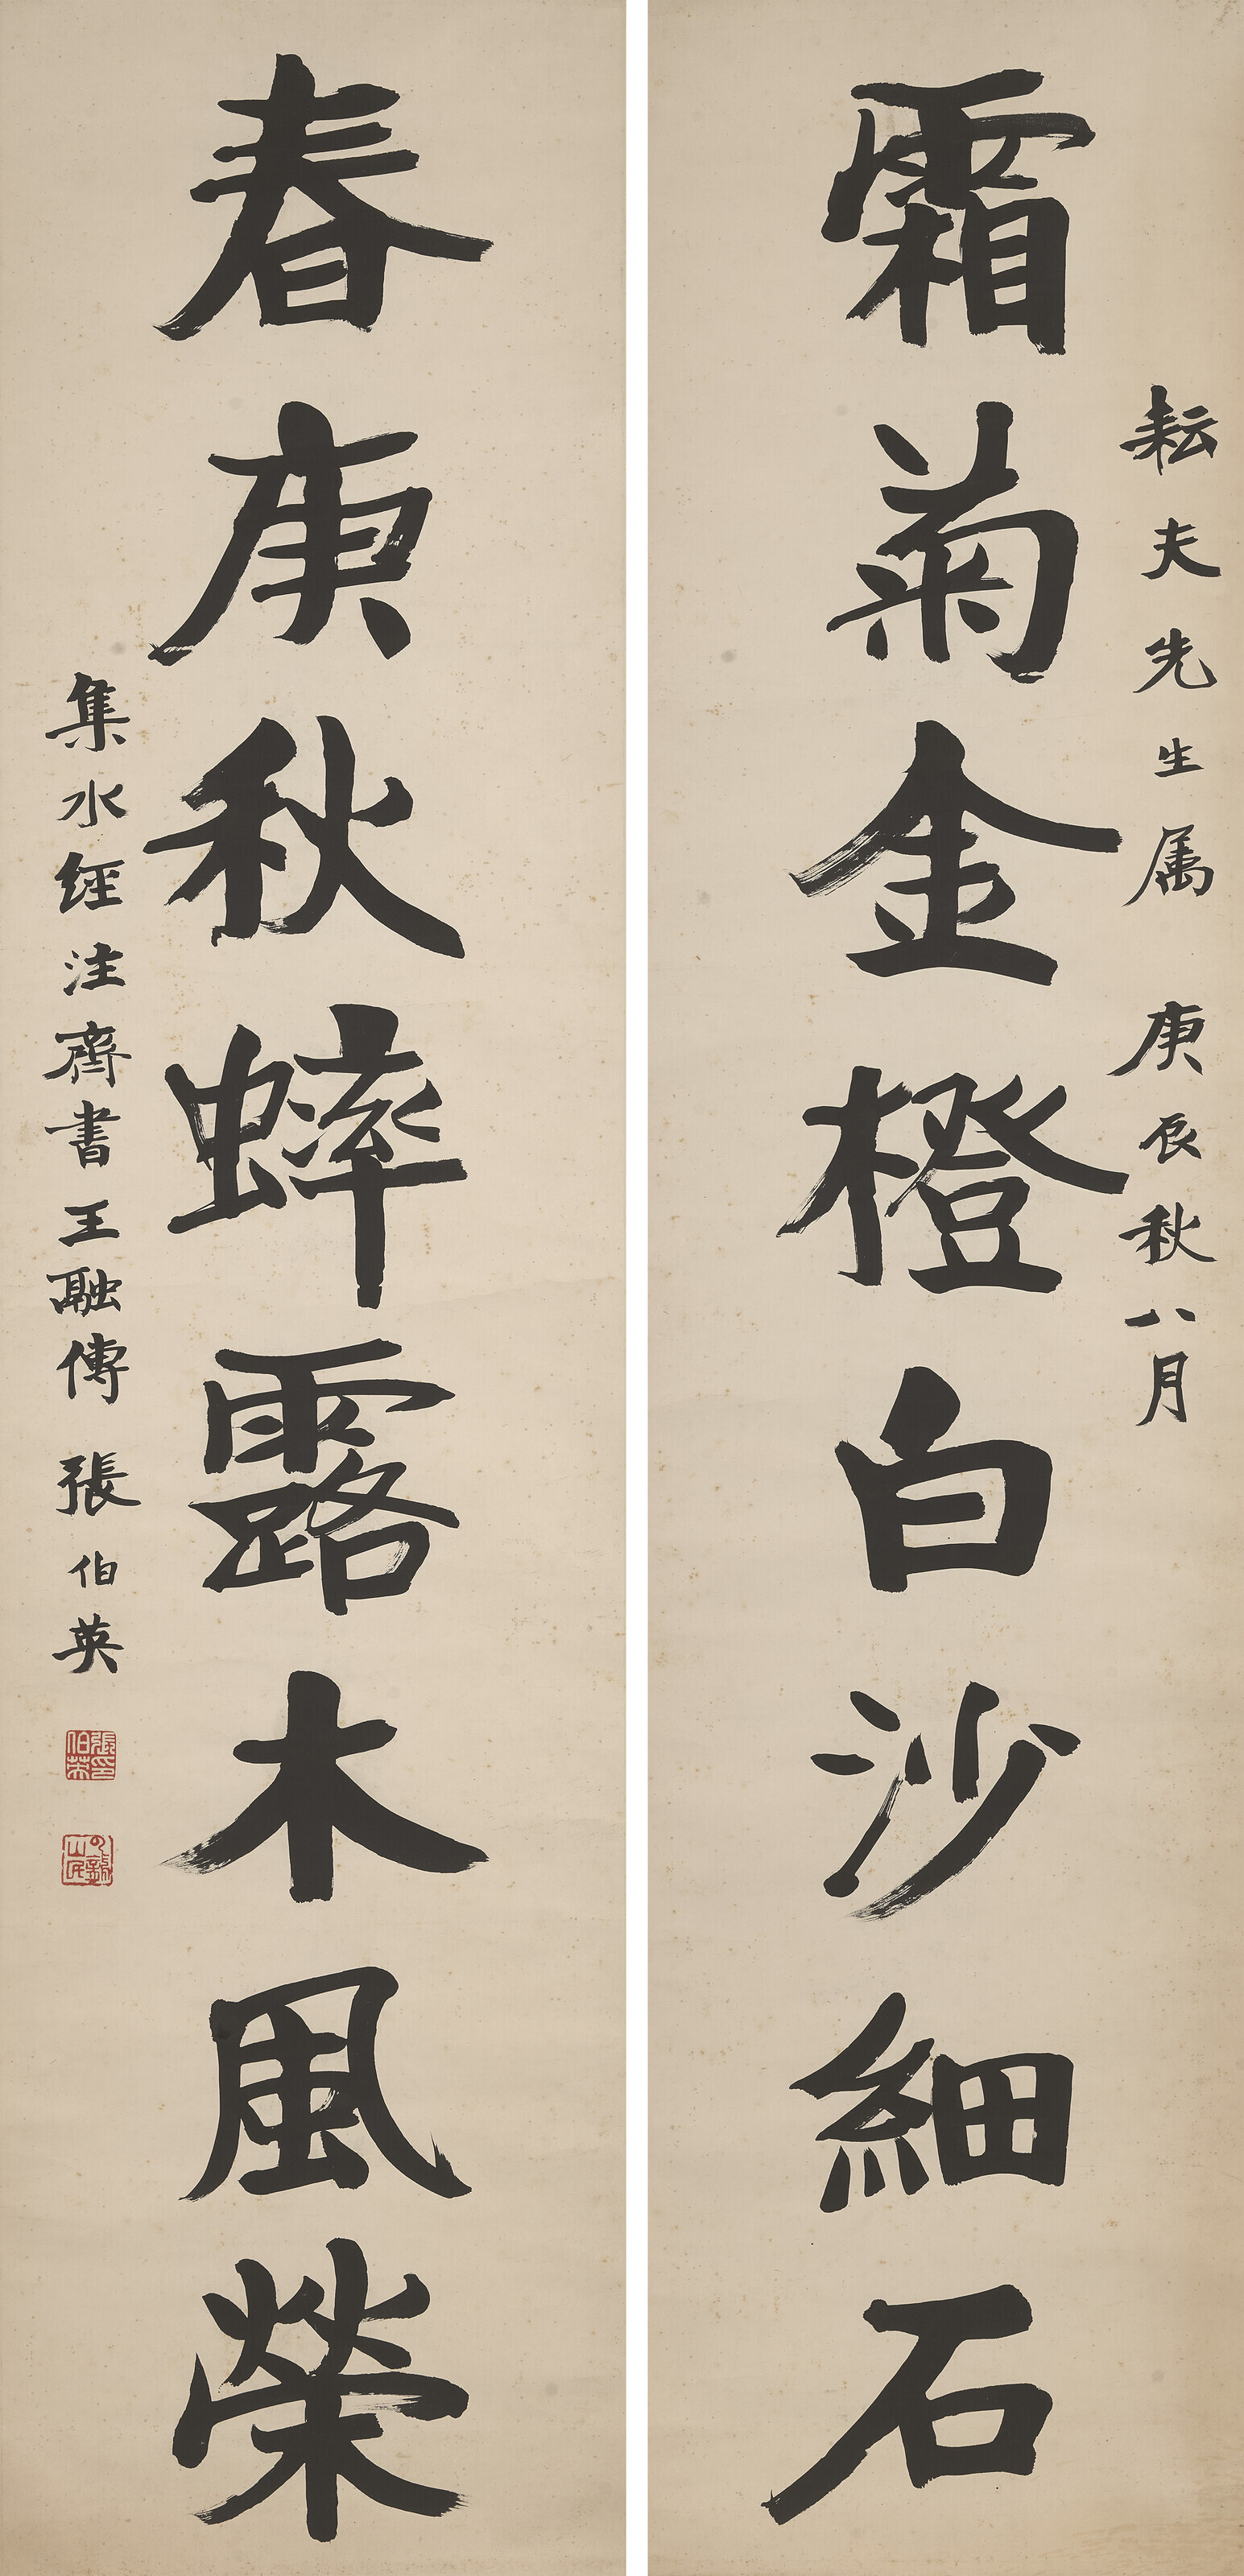 耘夫先生属 庚辰秋八月
霜菊金橙白沙細石
春庚秋蟀露木風榮
集水經注齊書王融傳 張伯英
張印伯英
云龍山民